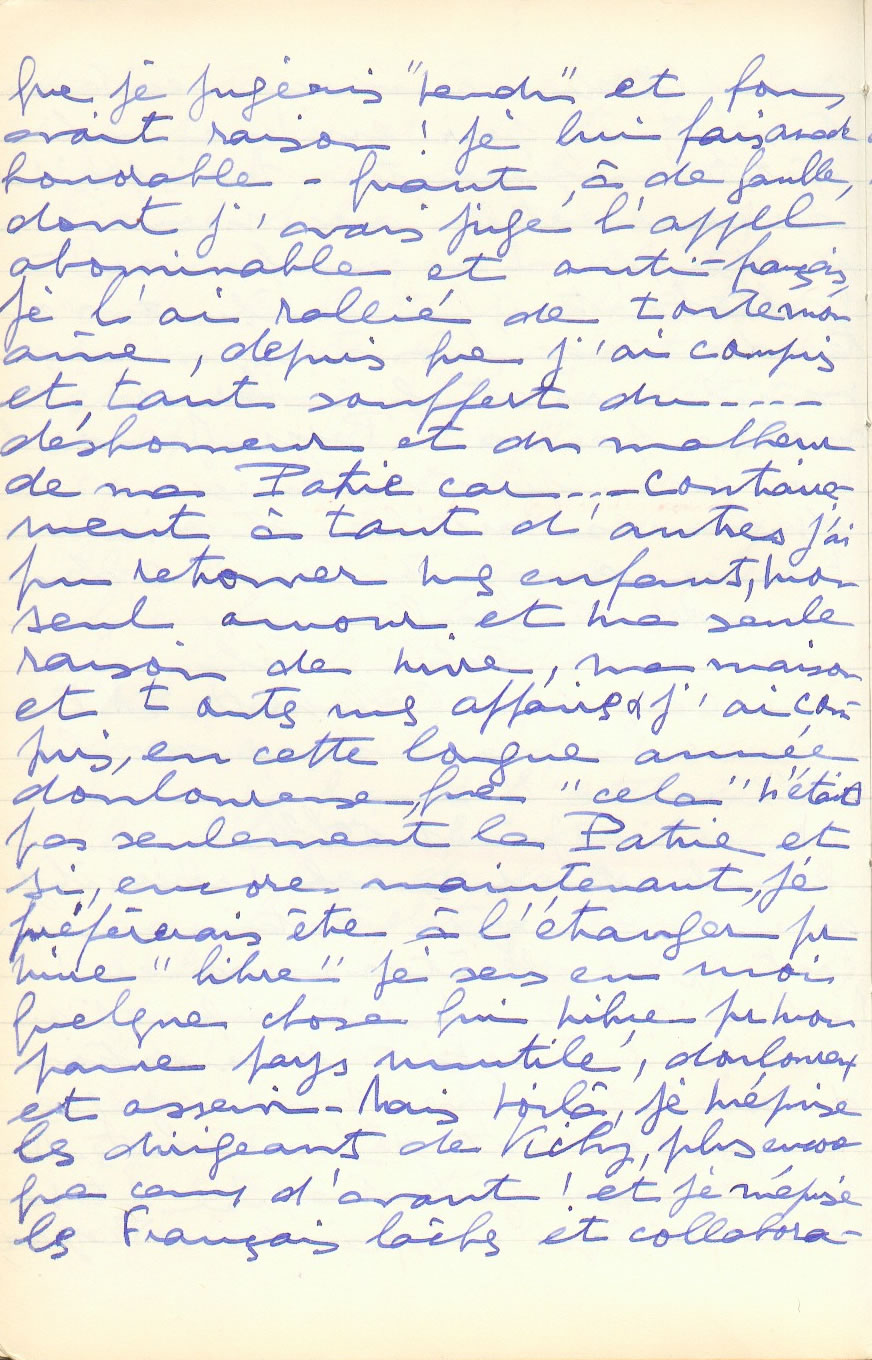 que je jugeais "vendu" et fou,
avait raison ! je lui fais amende
honorable - quant à de Gaulle,
dont j'avais jugé l'appel
abominable et anti-français,
je l'ai rallié de toute mon
âme, depuis que j'ai compris
et tant souffert du ----
déshonneur et du malheur
de ma Patrie car --- contraire-
ment à tant d'autres j'ai
pu retrouver mes enfants, mon
seul amour et ma seule
raison de vivre, ma maison
et toutes mes affaires & j'ai com-
pris, en cette longue année
douloureuse, que "cela" n'était
pas seulement la Patrie et
si, encore maintenant, je
préférerais être à l'étranger pr
vivre "libre" je sens en moi
quelque chose qui vibre pr mon
pauvre pays mutilé, douloureux
et asservi - Mais voilà, je méprise
les dirigeants de Vichy, plus encore
que ceux d'avant ! et je méprise
les Français lâches et collabora-